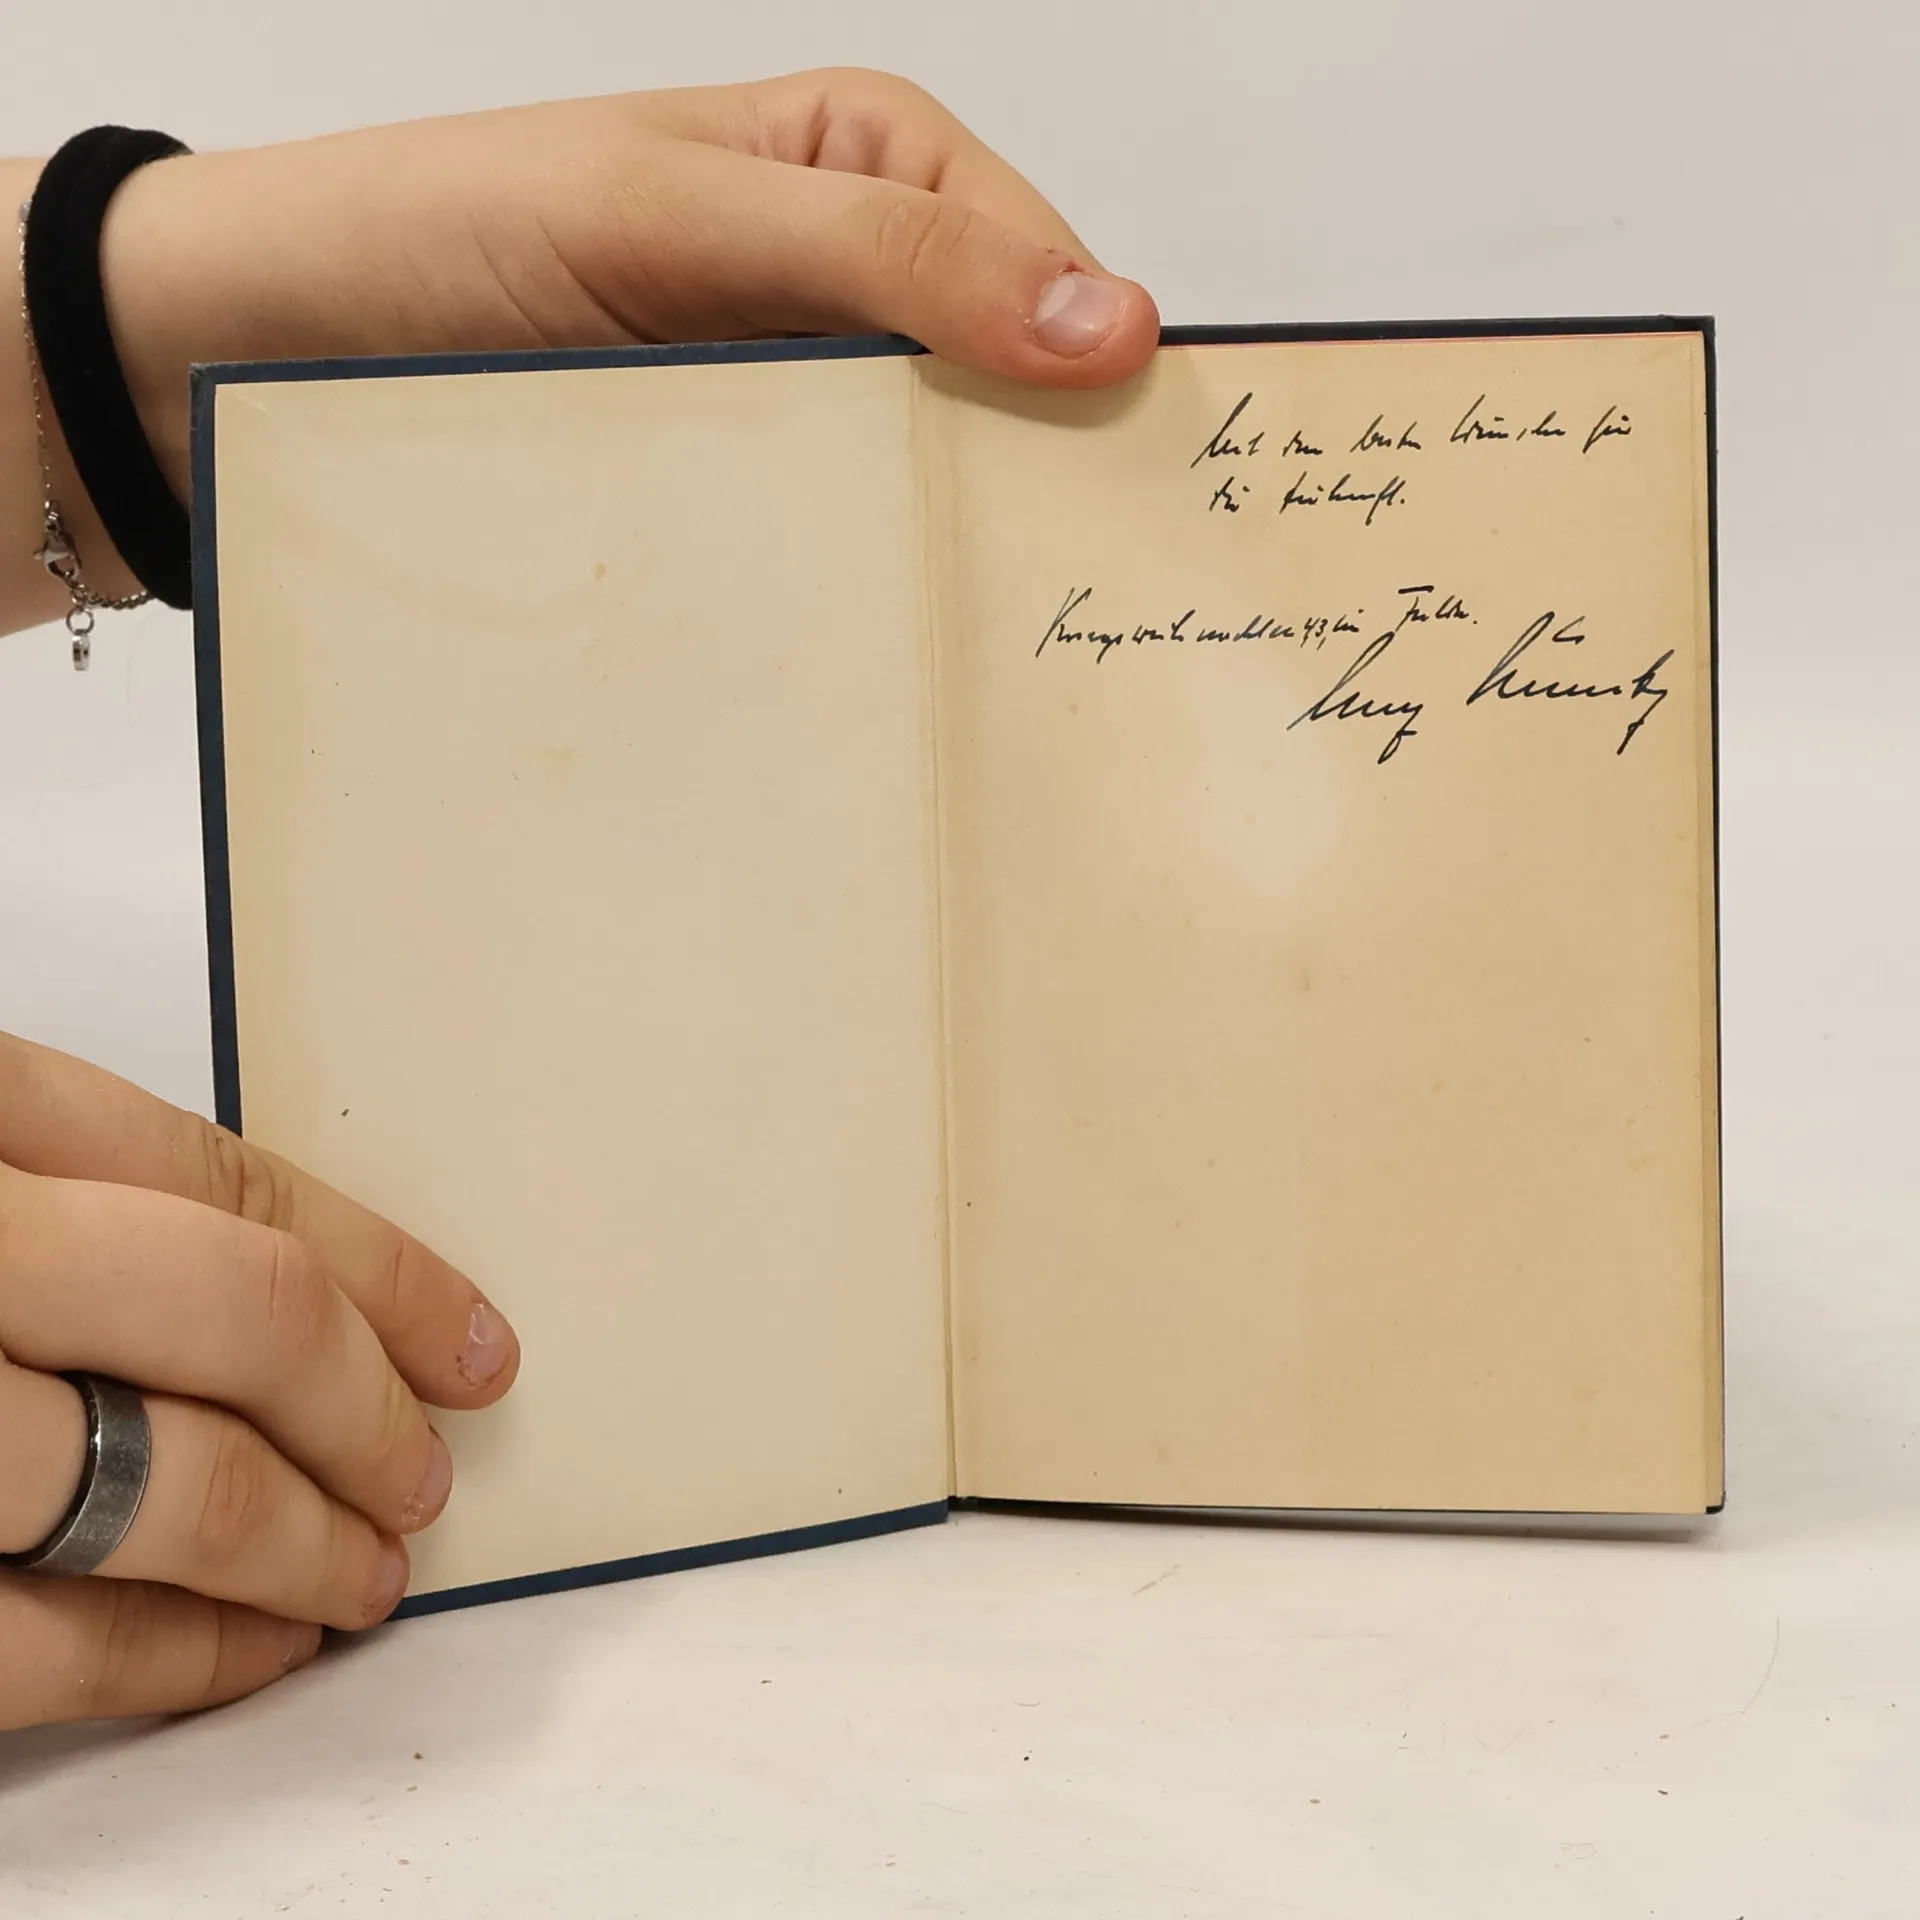 Mit den besten Wünschen für
die Zukunft.
Kriegsweihnachten 43, im Felde.